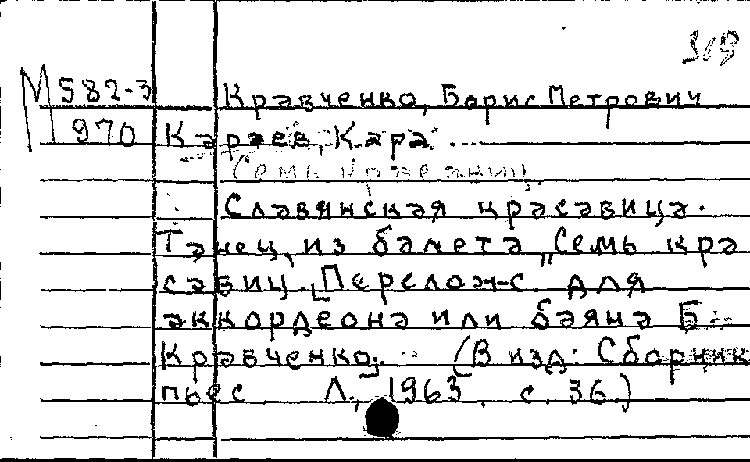 369
М 582-3 Кравченко, Борис Петрович
970 Караев, Кара
Семь красавиц.
Славянская красавица.
Танец из балета „Семь кра
савиц. [Перелож-е для
аккордеона или баяна Б.
Кравченко]. (В изд: Сборник
пьес Л., 1963. с. 36.)